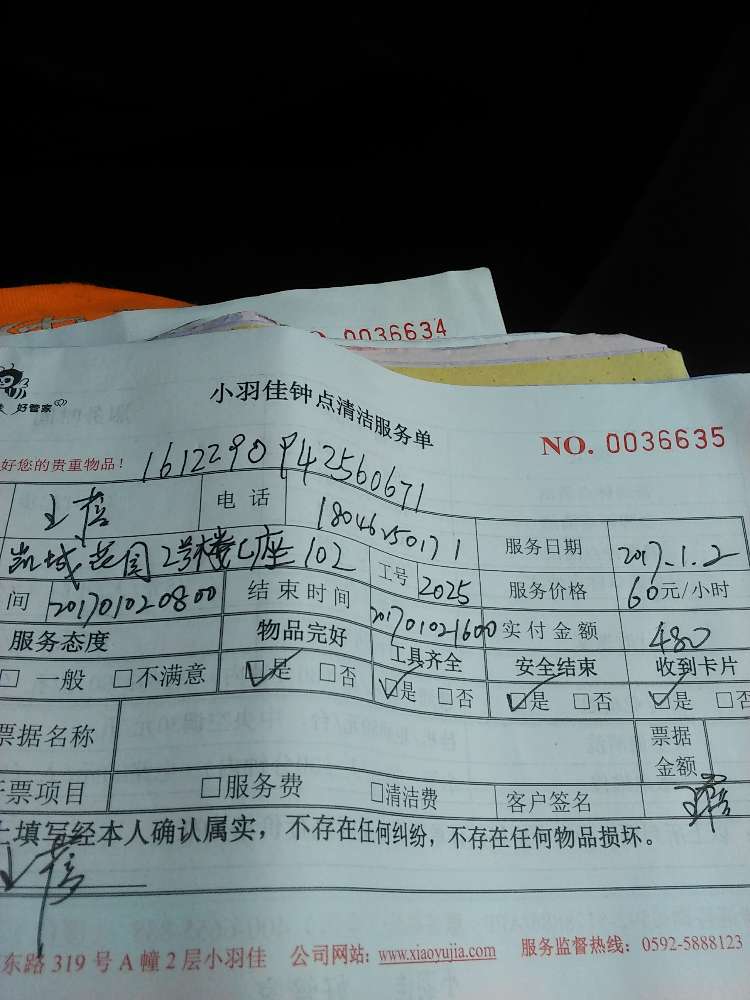 0036634
好管家
小羽佳钟点清洁服务单
NO. 0036635
好您的贵重物品！
1612290942560671
电话
服务日期 2017.1.2
2号楼C座102 工号 2025 服务价格 60元/小时
间 201701020800 结束时间 201701021600 实付金额 480
服务态度 物品完好 工具齐全 安全结束 收到卡片
□一般 □不满意 ☑是 □否 ☑是 □否 ☑是 □否 ☑是 □否
票据名称 票据金额
开票项目 □服务费 □清洁费 客户签名
上填写经本人确认属实，不存在任何纠纷，不存在任何物品损坏。
东路319号A幢2层小羽佳 公司网站：www.xiaoyujia.com 服务监督热线：0592-5888123